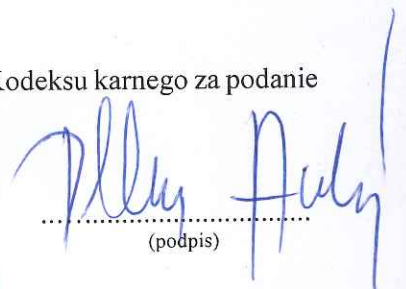 Kodeksu karnego za podanie
................................................
(podpis)